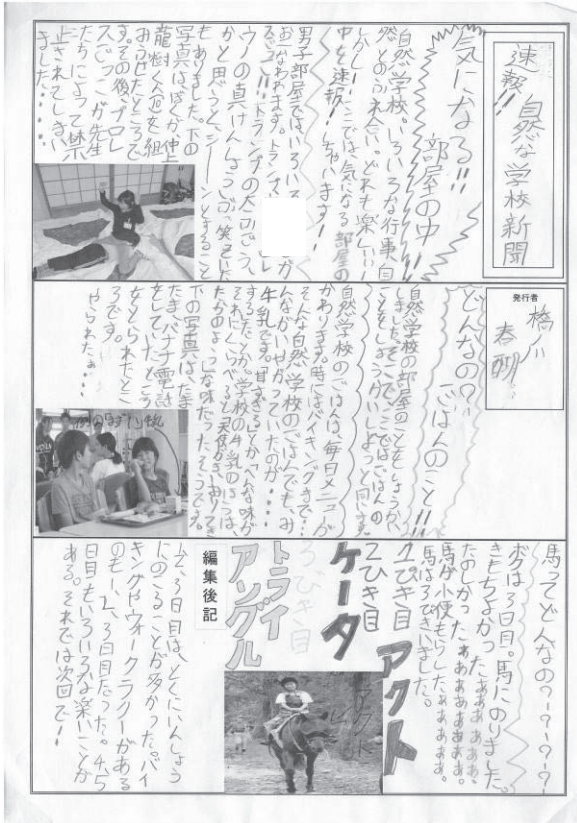 速報!! 自然な学校新聞
気になる!!
部屋の中
自然学校。いろいろな行事、自
然とのふれ合い。どれも楽しい!
しかし!ここでは、気になる部屋の
中を速報!しちゃいます!
男子部屋では、いろいろ
おこなわれます。トランプ
スピード!!トランプの大ごうごう、
ウノの真けんしょうぶ、笑っていた
かと思うと、シーンとすること
もありました。下の
写真は、ぼくが、仲上
龍
おうせたところで
す。その後、プロレ
スごっこが先生
たちによって禁
止されてしまい
ました・・・・
発行者
橋爪
どんなの?
ごはんのこと!!
自然学校の部屋のことをしょうかい
しました。そこで、ここではごはんの
ことをしょうかいしようと思います。
自然学校のごはんは、毎日メニューが
かわります。時にはバイキングまで・・・
そんな自然学校のごはんでも、み
んながいやがっていたのが・・・・
牛乳です。
学校の牛乳のほうは、
それにくらべると、天使が
たかのような味だったそうです。
下の写真は、たま
たまバナナ電話
をしていたところ
をとられたとこ
ろです。
やられたぁ・・・
馬ってどんなの?・?・?・?・?
ボクは3日目。馬にのりました。
きもちよかったぁぁぁぁぁぁ。
たのしかったぁぁぁぁぁぁぁ。
馬が小便もらしたぁぁぁぁぁ。
馬は3びきいました。
1ぴき目 アクト
2ひき目
ケータ
3びき目
トライ
アングル
編集後記
1、2、3日目は、とくにいんしょう
にのこることが多かった。バイ
キングやウォークラリーがある
のも1、2、3日目だった。4、5
日目もいろいろな楽しいことが
ある。それでは次回で!